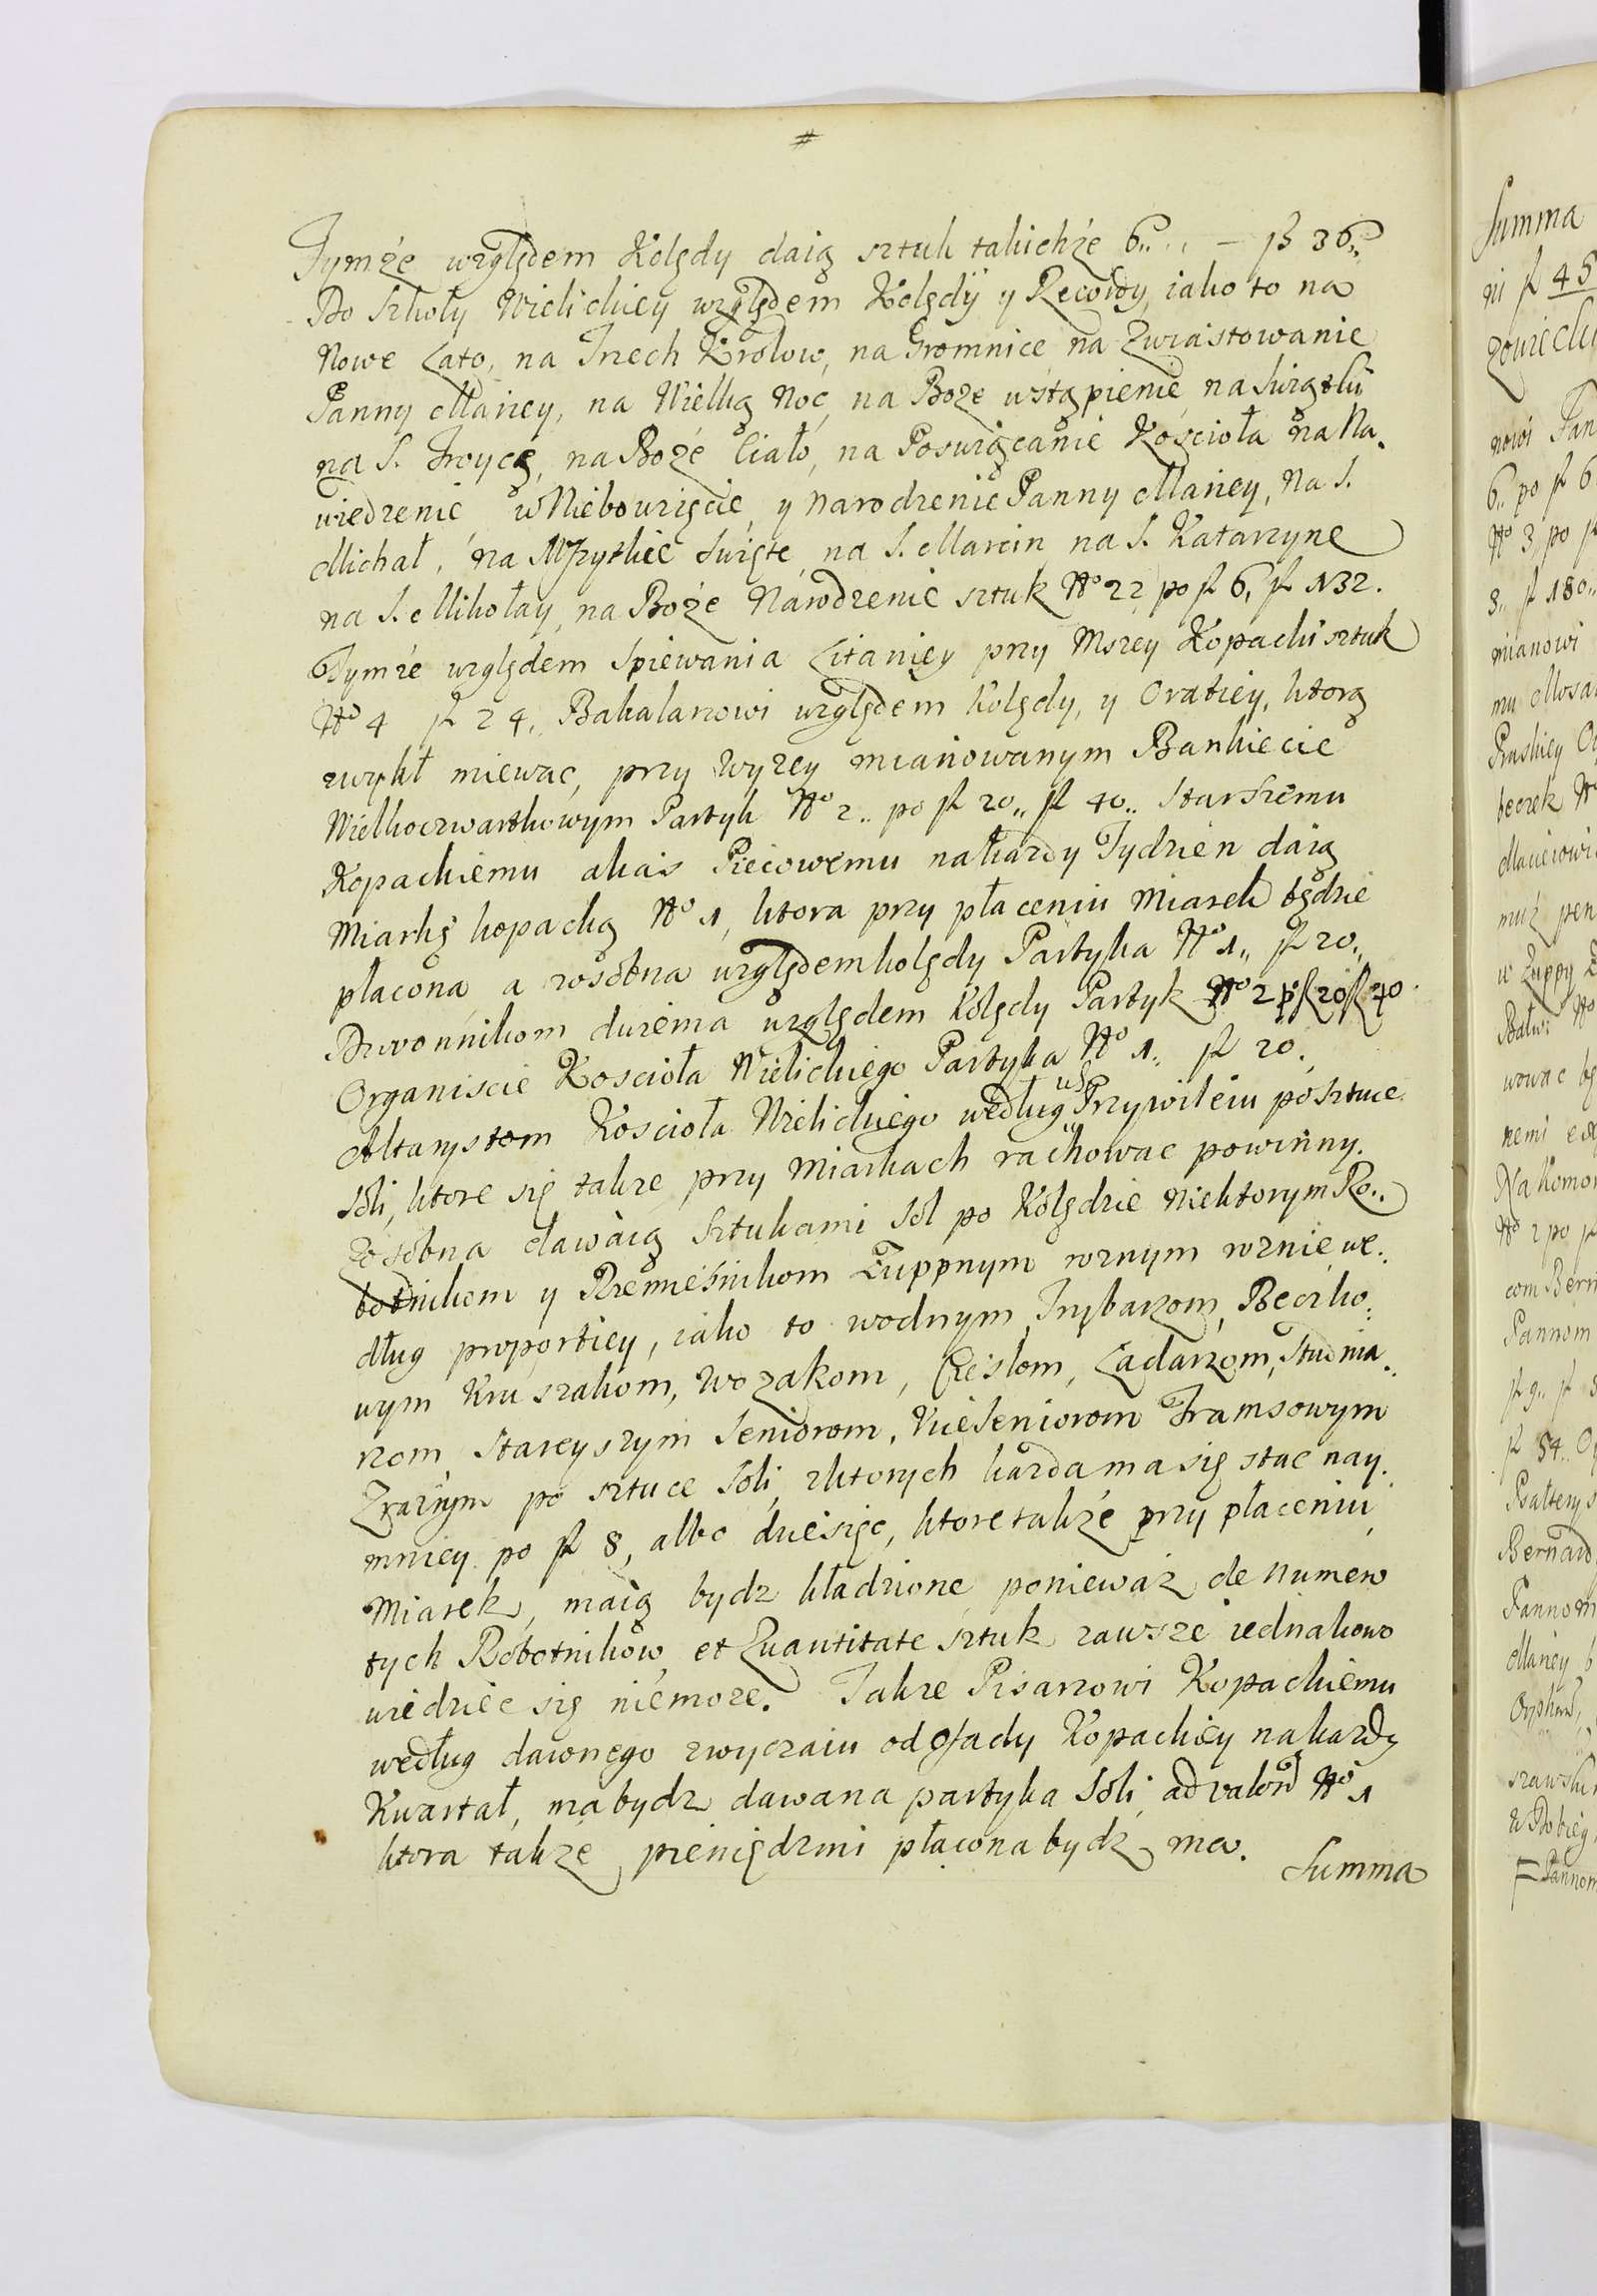 #
Tymże względem Kolędy daią sztuk takichże 6„ .. — fl 36„
Do Szkoły Wielickiey względem Kolędÿ y Recordy, iako to na
Nowe Lato, na Trzech Krolow, na Gromnice, na Zwiastowanie
Panny Mariey, na Wielką Noc, na Boże wstąpienie, na Swiątki
na S. Troycę, na Boże Ciało, na Poswiącanie Kościoła na Na.
wiedzenie w Niebowzięcie, y Narodzenie Panny Mariey, Na S.
Michał, na Wszytkie Swięte, na S. Marcin na S. Katarzyne
na S. Mikołay, na Boże Narodzenie sztuk No 22 po fl 6, fl 132.
Tymże względem Spiewania Litaniey przy Mszey Kopacki sztuk
No 4 fl 24. Bakalarzowi względem kolędy, y Oratiey, ktorą
zwykł miewac, przy wyzey mianowanym Bankiecie
Wielkoczwartkowym Partyk No 2.. po fl 20„ fl 40.. Starszemu
Kopackiemu alias Piecowemu nakazdy Tydzien daią
Miarkę kopacką No 1, ktora przy płaceniu Miarek będzie
płacona a zosobna względem kolędy Partyka No 1„ fl 20„
Dzwonnikom dwiema względem kolędy Partyk No 2 p fl 20 fl 40.
Organiscie Koscioła Wielickiego Partyka No 1.. fl 20.
Altarystom Koscioła Wielickiego według Przywileiu po sztuce
Soli, ktore się takze przy Miarkach rachowac powinny.
Zosobna dawaią Sztukami Sol po Kolędzie niektorym Ro..
botnikom y Rzemieśnikom Zuppnym roznym roznie we.
dług proportiey, iako to wodnym, Trybarzom, Beczko.
wym Kruszakom, Wozakom, Cieslom, Ladarzom, Studnia.
rzom Stareyszym Seniorom, Nieseniorom Tramsowym
po sztuce Soli, zktorych kazda ma się stac nay.
mniey po fl 8, albo dziesięc, ktore takze przy płaceniu
Miarek, maią bydz kładzione, poniewaz de numero
tych Robotnikow et Quantitate sztuk zawsze iednakowo
wiedziec się niemoze. Takze Pisarzowi Kopackiemu
według dawnego zwyczaiu od Osady Kopackiey nakazdy
Kwartał, ma bydz dawana partyka Soli, ad valorem No 1
ktora takze pieniędzmi płacona bydz ma.
Summa
Summa
ni fl 45
nowi Pan
6„ po fl 6
No 3, po fl
8„ fl 180„
mianowi
beczek No
muż pen
w Zuppy
wowac bę
nemi
Na Komor
No 2 po fl
com Bern
Pannom
fl 9„ fl
fl 54..
Bernard
Pannom
Mariey
Pannom